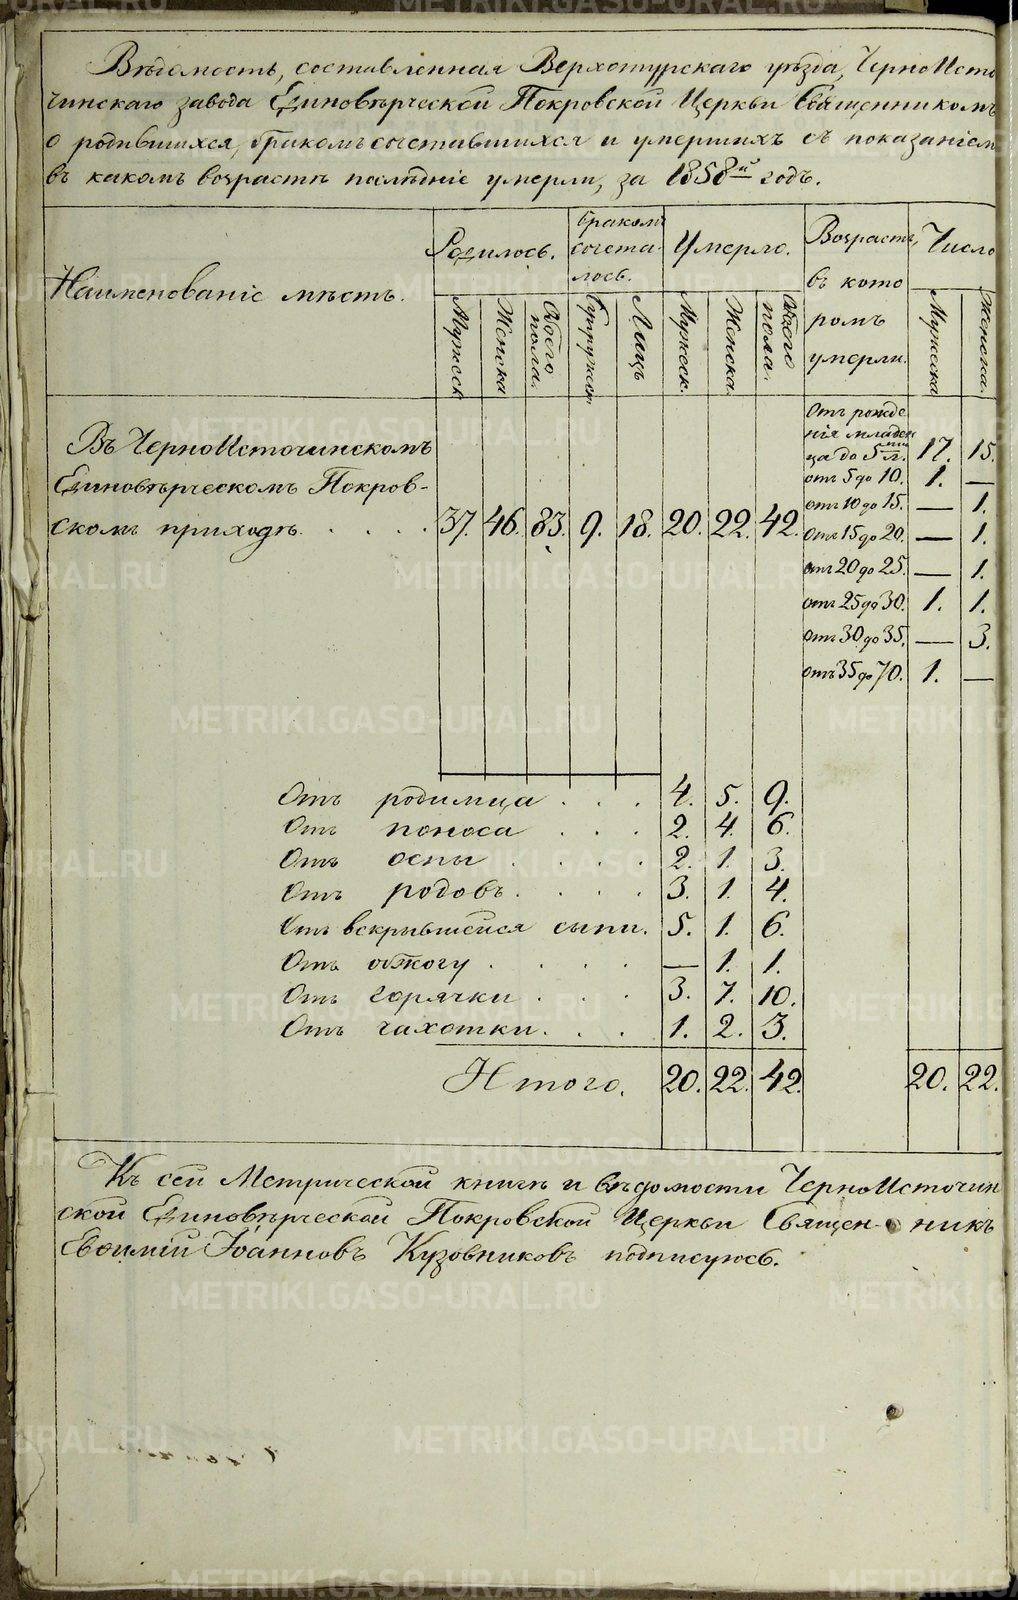 Вѣдомость, составленная Верхотурскаго уѣзда, ЧерноИсто
чинскаго завода Единовѣрческой Покровской Церкви Священникомъ
о родившихся, бракомъ сочетавшихся и умершихъ съ показаніемъ
въ какомъ возрастѣ послѣдніе умерли, за 1858й годъ.
Наименованіе мѣстъ.
Родилось.
Бракомъ
сочета-
лось.
Умерло.
Возрастъ,
въ кото
ромъ
умерли.
Число
Мужеск
Женска
Обоего
пола.
Супружес.
Лицъ
Мужеск.
Женска.
Обоего
пола.
Мужеска
Женска.
Въ ЧерноИсточинскомъ
Единовѣрческомъ Покров-
скомъ приходѣ. . . . . 37. 46. 83. 9. 18. 20. 22. 42.
Отъ рожде
нія младен
ца до 5ти л. 17. 15.
отъ 5 до 10. 1. —
отъ 10 до 15. — 1.
отъ 15 до 20. — 1.
отъ 20 до 25. — 1.
отъ 25 до 30. 1. 1.
отъ 30 до 35. — 3.
отъ 35 до 70. 1. —
Отъ родимца . . . 4. 5. 9.
Отъ поноса . . . 2. 4. 6.
Отъ оспы . . . . 2. 1. 3.
Отъ родовъ . . . . 3. 1. 4.
Отъ вскрывшейся сыпи. 5. 1. 6.
Отъ обжогу . . . . — 1. 1.
Отъ горячки . . . 3. 7. 10.
Отъ чахотки . . . 1. 2. 3.
Итого. 20. 22. 42. 20. 22.
Къ сей Метрической книгѣ и вѣдомости ЧерноИсточин
ской Единовѣрческой Покровской Церкви Священ- никъ
Евфимій Іоанновъ Кузовниковъ подписуюсь.
METRIKI.GASO-URAL.RU